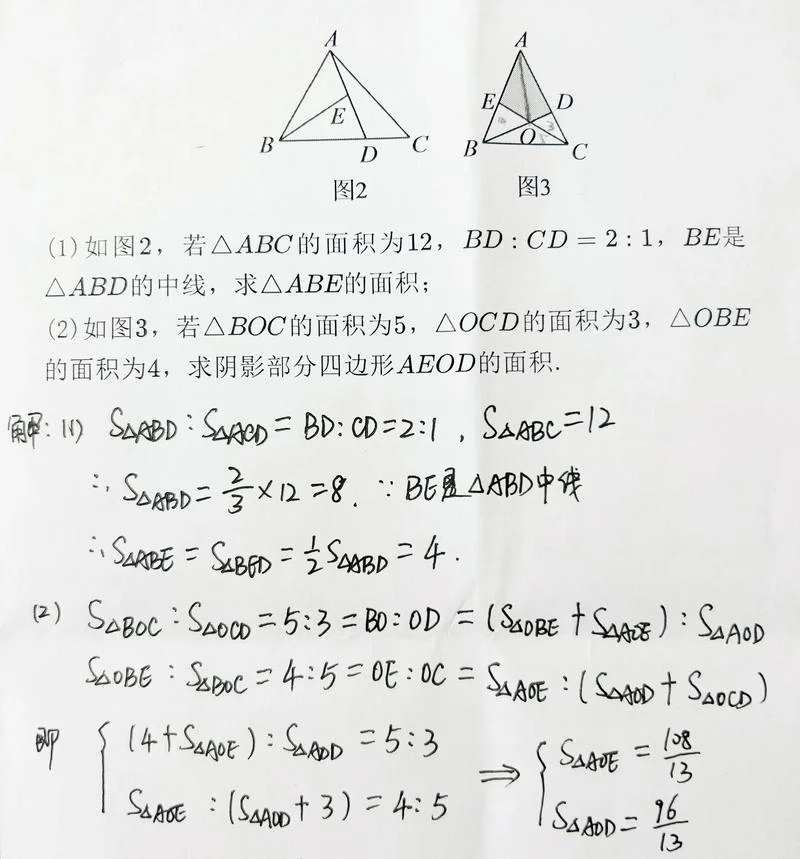 A
B
E
D
C
图2
A
E
D
B
O
C
图3
(1)如图2，若△ABC的面积为12，BD:CD=2:1，BE是
△ABD的中线，求△ABE的面积；
(2)如图3，若△BOC的面积为5，△OCD的面积为3，△OBE
的面积为4，求阴影部分四边形AEOD的面积.
解：(1) S△ABD：S△ACD = BD：CD=2:1，S△ABC=12
∴ S△ABD = 2/3 × 12 = 8. ∵ BE是△ABD中线
∴ S△ABE = S△BED = 1/2 S△ABD = 4.
(2) S△BOC：S△OCD = 5:3 = BO：OD = (S△OBE + S△AOE)：S△AOD
S△OBE：S△BOC = 4:5 = OE：OC = S△AOE：(S△AOD + S△OCD)
即 { (4+S△AOE)：S△AOD = 5:3 ⇒ { S△AOE = 108/13
S△AOE：(S△AOD+3) = 4:5 S△AOD = 96/13